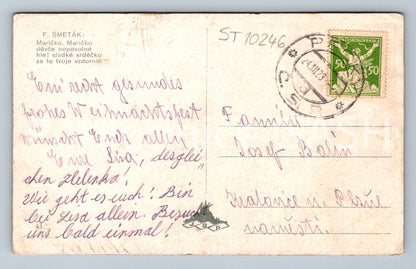 F. SMETÁK:
Maričko, Maričko
děvče nepovolné
hie! sladké srdéčko
za to tvoje vzdorné!
ST 10246
ČESKO-SLOVENSKO
50 50
24.XII.23
ČSP
Ein recht gesundes
frohes Weihnachtsfest
wünscht Euch allen
Eure Lisa, desglei
chen Helenka!
Wie geht es euch! Bin
bei Lisa allein. Besucht
uns bald einmal!
Familie
Josef
Kralovice u Plzně
náměstí.